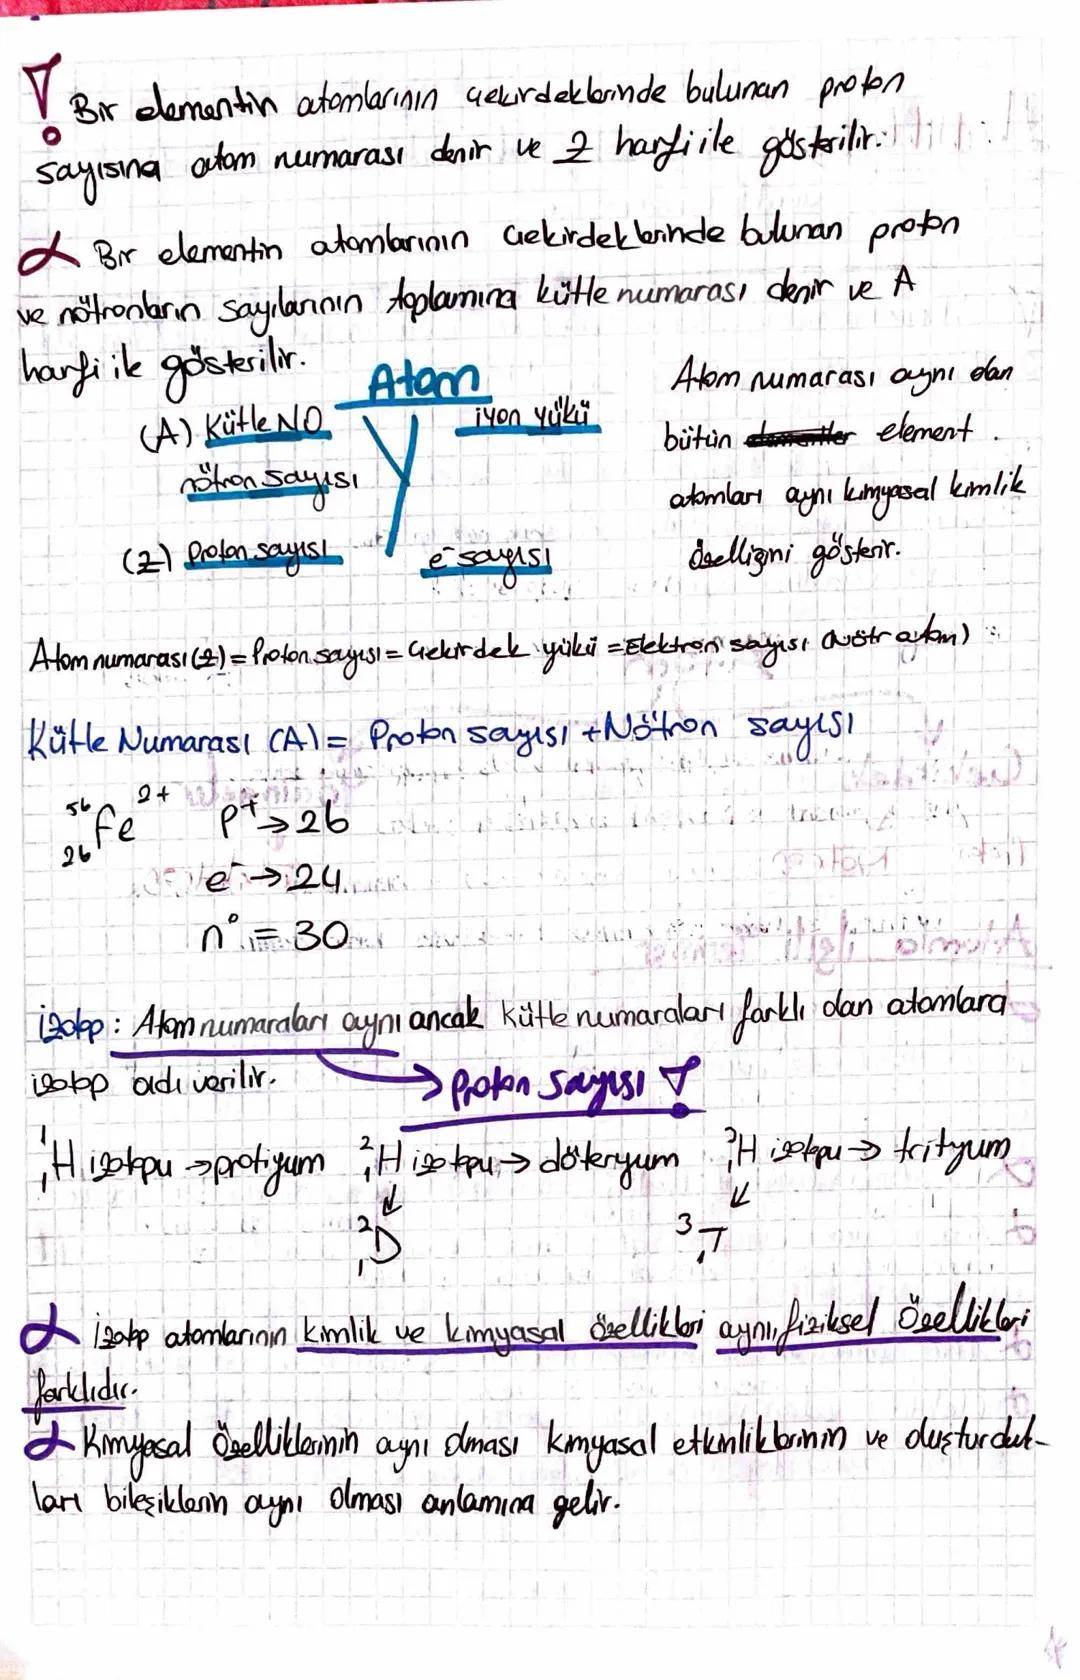 ! Bir elementin atomlarının çekirdeklerinde bulunan proton
sayısına atom numarası denir ve Z harfi ile gösterilir.
Bir elementin atomlarının çekirdeklerinde bulunan proton
ve nötronların sayılarının toplamına kütle numarası denir ve A
harfi ile gösterilir.
Atom
(A) Kütle NO
iyon yükü
nötron sayısı
(Z) Proton sayısı
e⁻ sayısı
Atom numarası aynı olan
bütün element
atomları aynı kimyasal kimlik
özelliğini gösterir.
Atom numarası (Z) = Proton sayısı = Çekirdek yükü = Elektron sayısı (Nötr atom)
Kütle Numarası (A) = Proton sayısı + Nötron sayısı
⁵⁶₂₆Fe²⁺ p⁺ → 26
e⁻ → 24
n⁰ = 30
İzotop : Atom numaraları aynı ancak kütle numaraları farklı olan atomlara
izotop adı verilir.
→ Proton sayısı !
¹₁H izotopu → protiyum ²₁H izotopu → döteryum ³₁H izotopu → trityum
²₁D ³₁T
İzotop atomlarının kimlik ve kimyasal özellikleri aynı, fiziksel özellikleri
farklıdır.
Kimyasal özelliklerinin aynı olması kimyasal etkinliklerinin ve oluşturduk-
ları bileşiklerin aynı olması anlamına gelir.